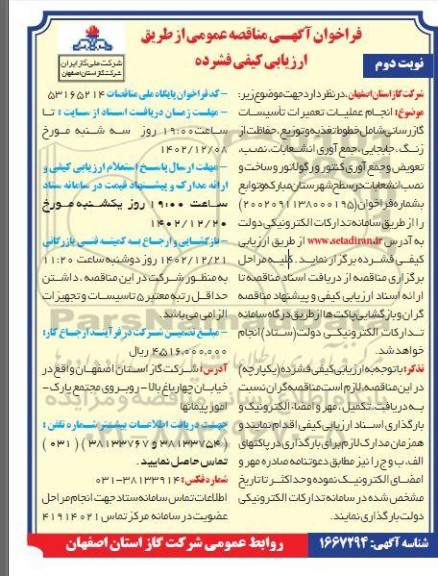 فراخوان آگهـی مناقصه عمومی از طریق
ارزیابی کیفی فشرده
شرکت ملی گاز ایران
شرکت گاز استان اصفهان
نوبت دوم
شرکت گاز استان اصفهان، در نظر دارد جهت موضوع زیر:
موضوع: انجام عملیات تعمیرات تأسیسات
گازرسانی شامل خطوط تغذیه و توزیع، حفاظت از
زنگ، جابجایی، جمع آوری انشعابات، نصب،
تعویض و جمع آوری کنتور و رگولاتور و ساخت و
نصب انشعابات در سطح شهرستان مبارکه و توابع
بشماره فراخوان (۲۰۰۲۰۹۱۱۳۸۰۰۰۱۹۵)
را از طریق سامانه تدارکات الکترونیکی دولت
به آدرس www.setadiran.ir از طریق ارزیابی
کیفی فشرده برگزار نماید. کلیه مراحل
برگزاری مناقصه از دریافت اسناد مناقصه تا
ارائه اسناد ارزیابی کیفی و پیشنهاد مناقصه
گران و بازگشایی پاکت ها از طریق درگاه سامانه
تدارکات الکترونیکی دولت (ستاد) انجام
خواهد شد.
تذکر: با توجه به ارزیابی کیفی فشرده (یکپارچه)
در این مناقصه، لازم است مناقصه گران نسبت
به دریافت، تکمیل، مهر و امضاء الکترونیک و
بارگذاری اسناد ارزیابی کیفی اقدام نمایند و
همزمان مدارک لازم برای بارگذاری در پاکتهای
الف، ب و ج را نیز مطابق دعوتنامه صادره مهر و
امضای الکترونیک نموده و حداکثر تا تاریخ
مشخص شده در سامانه تدارکات الکترونیکی
دولت بارگذاری نمایند.
- کد فراخوان پایگاه ملی مناقصات ۵۳۱۶۵۲۱۴
- مهلت زمان دریافت اسناد از سایت: تا
ساعت ۱۹:۰۰ روز سه شنبه مورخ
۱۴۰۲/۱۲/۰۸
- مهلت ارسال پاسخ استعلام ارزیابی کیفی و
ارائه مدارک و پیشنهاد قیمت در سامانه ستاد
ساعت ۱۹:۰۰ روز یکشنبه مورخ
۱۴۰۲/۱۲/۲۰
- بازگشایی و ارجاع به کمیته فنی بازرگانی
۱۴۰۲/۱۲/۲۱ روز دوشنبه ساعت ۱۱:۲۰
به منظور شرکت در این مناقصه، داشتن
حداقل رتبه معتبر ۵ تاسیسات و تجهیزات
الزامی می باشد.
- مبلغ تضمین شرکت در فرآیند ارجاع کار:
۴،۵۱۶،۰۰۰،۰۰۰ ریال
آدرس: شرکت گاز استان اصفهان واقع در
خیابان چهارباغ بالا - روبروی مجتمع پارک -
امور پیمانها
جهت دریافت اطلاعات بیشتر شماره تلفن:
(۳۸۱۳۳۷۵۴ و ۳۸۱۳۳۷۶۷) (۰۳۱)
تماس حاصل نمایید.
شماره فکس: ۳۸۱۳۳۹۱۴-۰۳۱
اطلاعات تماس سامانه ستاد جهت انجام مراحل
عضویت در سامانه: مرکز تماس ۰۲۱ ۴۱۹۱۴
شناسه آگهی: ۱۶۶۷۲۹۴
روابط عمومی شرکت گاز استان اصفهان